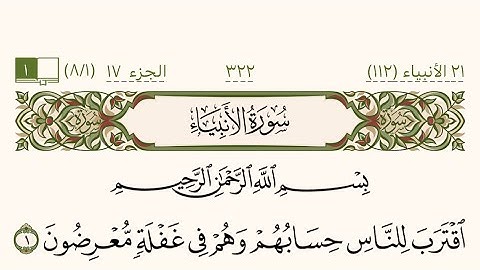 ٢١ الأنبياء (١١٢) ٣٢٢ الجزء ١٧ (٨/١) ١
سُورَةُ الأَنبِيَاءِ
بِسْمِ ٱللَّهِ ٱلرَّحْمَٰنِ ٱلرَّحِيمِ
ٱقْتَرَبَ لِلنَّاسِ حِسَابُهُمْ وَهُمْ فِى غَفْلَةٍ مُّعْرِضُونَ ١